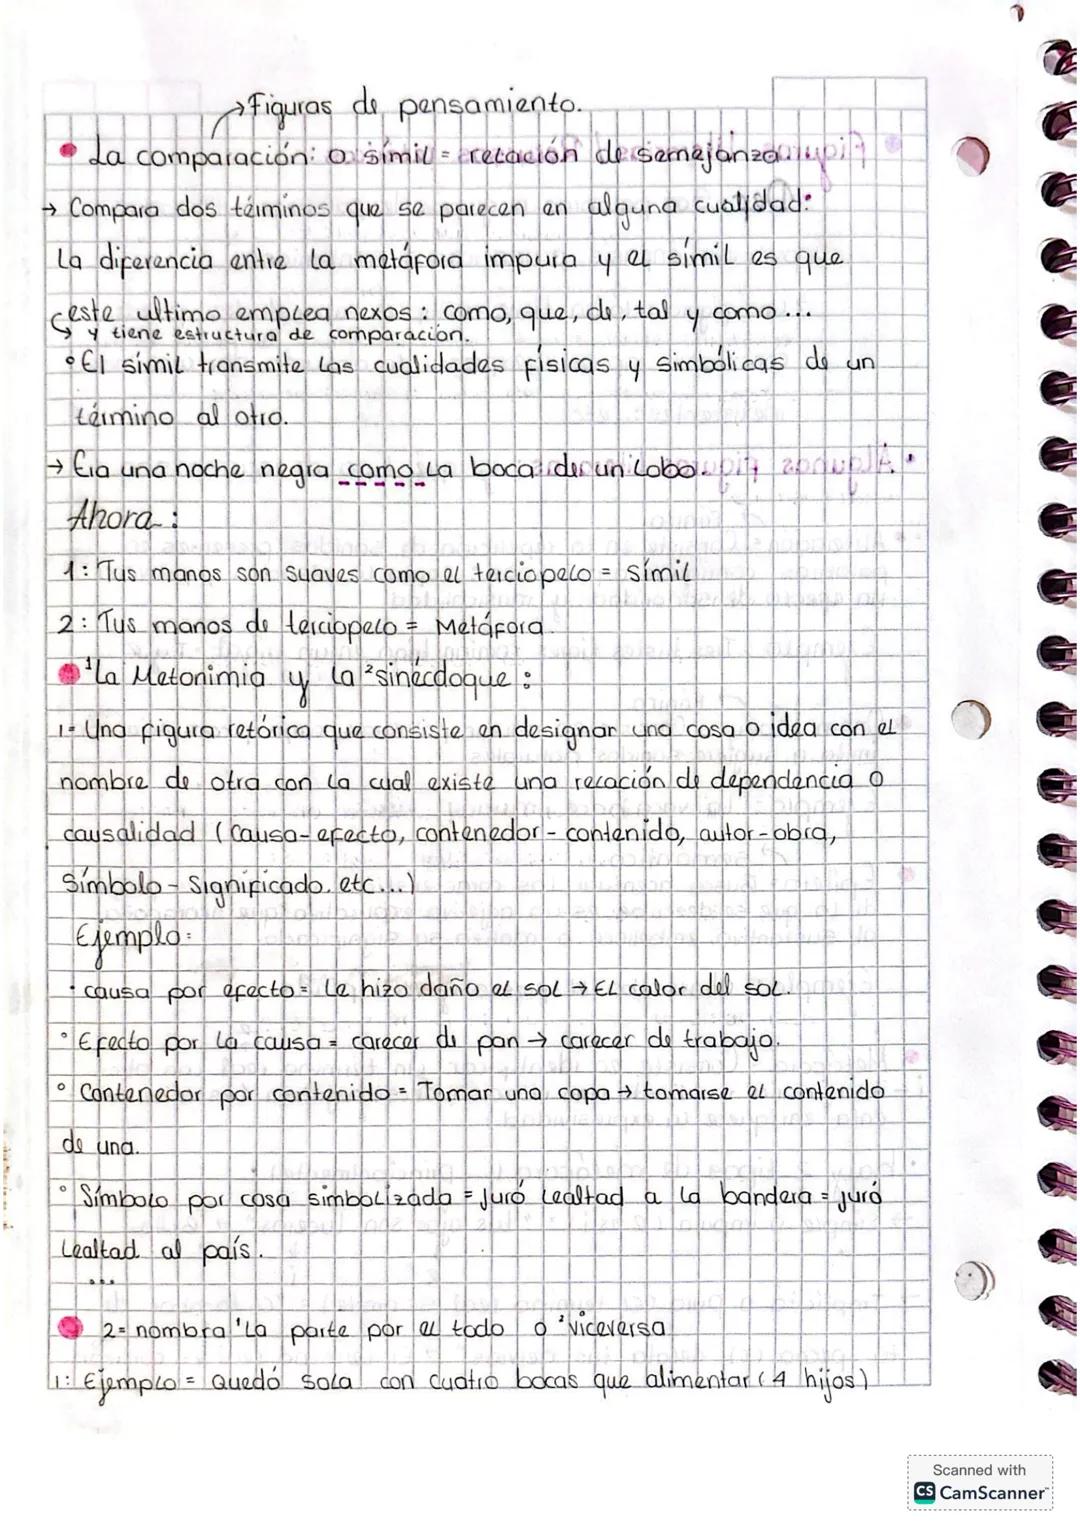 →Figuras de pensamiento.
• La comparación: o símil = relación de semejanza
→ Compara dos términos que se parecen en alguna cualidad:
La diferencia entre la metáfora impura y el símil es que
este ultimo emplea nexos: como, que, de, tal y como...
↳ y tiene estructura de comparación.
° El símil transmite las cualidades físicas y simbólicas de un
término al otro.
→ Era una noche negra como la boca de un lobo.
Ahora:
1: Tus manos son suaves como el terciopelo = símil
2: Tus manos de terciopelo = Metáfora.
• ¹La Metonimia y la ²sinécdoque:
1= Una figura retórica que consiste en designar una cosa o idea con el
nombre de otra con la cual existe una relación de dependencia o
causalidad (causa-efecto, contenedor - contenido, autor-obra,
Símbolo - Significado. etc...)
Ejemplo:
· causa por efecto = Le hizo daño el sol → El calor del sol.
° Efecto por la causa = carecer de pan → carecer de trabajo.
° Contenedor por contenido = Tomar una copa → tomarse el contenido
de una.
° Símbolo por cosa simbolizada = Juró lealtad a la bandera = juró
lealtad al país.
...
• 2= nombra ¹La parte por el todo o ²viceversa
1: Ejemplo = Quedó sola con cuatro bocas que alimentar (4 hijos)
Scanned with
CS CamScanner